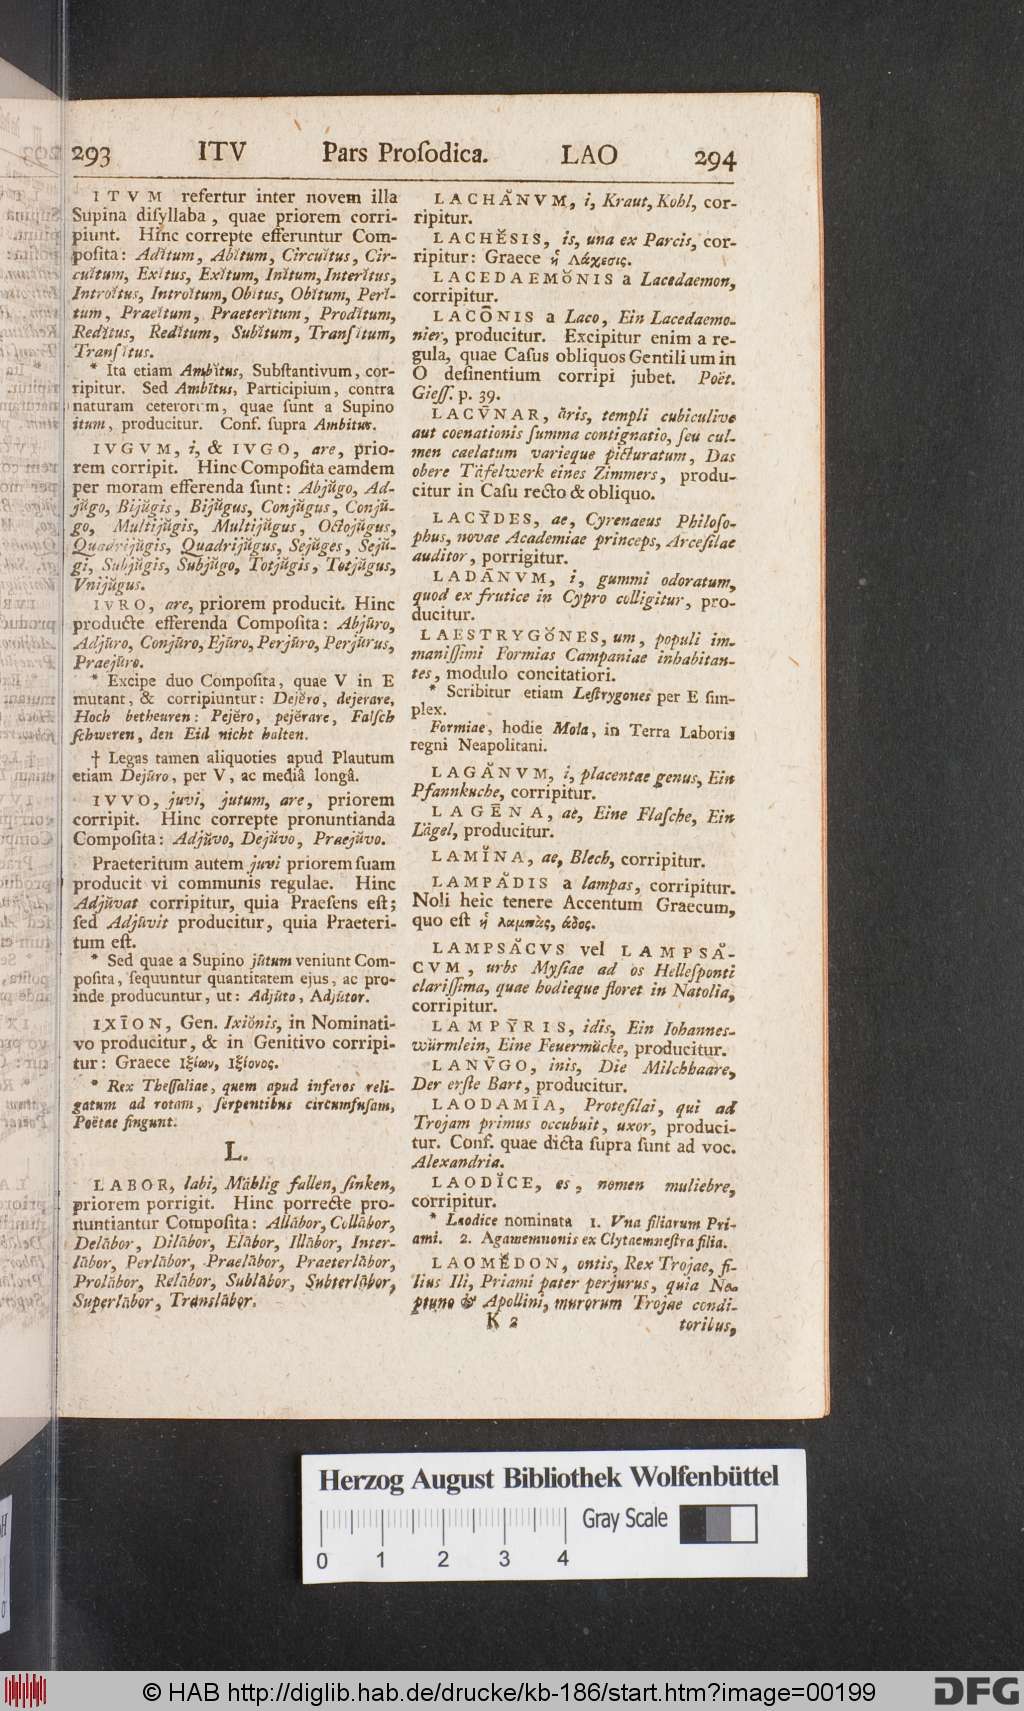 293 ITV Pars Proſodica. LAO 294
ITVM refertur inter novem illa
Supina diſyllaba, quae priorem corri-
piunt. Hinc correpte efferuntur Com-
poſita: Adĭtum, Abĭtum, Circuĭtus, Cir-
cuĭtum, Exĭtus, Exĭtum, Inĭtum, Interĭtus,
Introĭtus, Introĭtum, Obĭtus, Obĭtum, Perĭ-
tum, Praeĭtum, Praeterĭtum, Prodĭtum,
Redĭtus, Redĭtum, Subĭtum, Tranſĭtum,
Tranſĭtus.
* Ita etiam Ambĭtus, Subſtantivum, cor-
ripitur. Sed Ambītus, Participium, contra
naturam ceterorum, quae ſunt a Supino
itum, producitur. Conf. ſupra Ambitus.
IVGVM, i, & IVGO, are, prio-
rem corripit. Hinc Compoſita eamdem
per moram efferenda ſunt: Abjŭgo, Ad-
jŭgo, Bijŭgis, Bijŭgus, Conjŭgus, Conjŭ-
go, Multijŭgis, Multijŭgus, Octojŭgus,
Quadrijŭgis, Quadrijŭgus, Sejŭges, Sejŭ-
gi, Subjŭgis, Subjŭgo, Totjŭgis, Totjŭgus,
Vnijŭgus.
IVRO, are, priorem producit. Hinc
producte efferenda Compoſita: Abjūro,
Adjūro, Conjūro, Ejūro, Perjūro, Perjūrus,
Praejūro.
* Excipe duo Compoſita, quae V in E
mutant, & corripiuntur: Dejĕro, dejerare,
Hoch betheuren: Pejĕro, pejĕrare, Falſch
ſchweren, den Eid nicht halten.
† Legas tamen aliquoties apud Plautum
etiam Dejūro, per V, ac mediâ longâ.
IVVO, juvi, jutum, are, priorem
corripit. Hinc correpte pronuntianda
Compoſita: Adjŭvo, Dejŭvo, Praejŭvo.
Praeteritum autem juvi priorem ſuam
producit vi communis regulae. Hinc
Adjŭvat corripitur, quia Praeſens eſt;
ſed Adjūvit producitur, quia Praeteri-
tum eſt.
* Sed quae a Supino jūtum veniunt Com-
poſita, ſequuntur quantitatem ejus, ac pro-
inde producuntur, ut: Adjūto, Adjūtor.
IXĪON, Gen. Ixiŏnis, in Nominati-
vo producitur, & in Genitivo corripi-
tur: Graece Ἰξίων, Ἰξίονος.
* Rex Theſſaliae, quem apud inferos reli-
gatum ad rotam, ſerpentibus circumfuſam,
Poëtae fingunt.
L.
LABOR, labi, Mählig fallen, ſinken,
priorem porrigit. Hinc porrecte pro-
nuntiantur Compoſita: Allābor, Collābor,
Delābor, Dilābor, Elābor, Illābor, Inter-
lābor, Perlābor, Praelābor, Praeterlābor,
Prolābor, Relābor, Sublābor, Subterlābor,
Superlābor, Translābor.
LACHĂNVM, i, Kraut, Kohl, cor-
ripitur.
LACHĔSIS, is, una ex Parcis, cor-
ripitur: Graece ἡ Λάχεσις.
LACEDAEMŎNIS a Lacedaemon,
corripitur.
LACŌNIS a Laco, Ein Lacedaemo-
nier, producitur. Excipitur enim a re-
gula, quae Caſus obliquos Gentilium in
O deſinentium corripi jubet. Poët.
Gieſſ. p. 39.
LACŪNAR, āris, templi cubiculive
aut coenationis ſumma contignatio, ſeu cul-
men caelatum varieque picturatum, Das
obere Täfelwerk eines Zimmers, produ-
citur in Caſu recto & obliquo.
LACȲDES, ae, Cyrenaeus Philoſo-
phus, novae Academiae princeps, Arceſilae
auditor, porrigitur.
LADĀNVM, i, gummi odoratum,
quod ex frutice in Cypro colligitur, pro-
ducitur.
LAESTRYGŎNES, um, populi im-
maniſſimi Formias Campaniae inhabitan-
tes, modulo concitatiori.
* Scribitur etiam Leſtrygones per E ſim-
plex.
Formiae, hodie Mola, in Terra Laboris
regni Neapolitani.
LAGĂNVM, i, placentae genus, Ein
Pfannkuche, corripitur.
LAGĒNA, ae, Eine Flaſche, Ein
Lägel, producitur.
LAMĬNA, ae, Blech, corripitur.
LAMPĂDIS a lampas, corripitur.
Noli heic tenere Accentum Graecum,
quo eſt ἡ λαμπὰς, άδος.
LAMPSĂCVS vel LAMPSĂ-
CVM, urbs Myſiae ad os Helleſponti
clariſſima, quae hodieque floret in Natolia,
corripitur.
LAMPȲRIS, idis, Ein Iohannes-
würmlein, Eine Feuermücke, producitur.
LANŪGO, inis, Die Milchhaare,
Der erſte Bart, producitur.
LAODAMĪA, Proteſilai, qui ad
Trojam primus occubuit, uxor, produci-
tur. Conf. quae dicta ſupra ſunt ad voc.
Alexandria.
LAODĬCE, es, nomen muliebre,
corripitur.
* Laodice nominata 1. Vna filiarum Pri-
ami. 2. Agamemnonis ex Clytaemneſtra filia.
LAOMĔDON, ontis, Rex Trojae, fi-
lius Ili, Priami pater perjurus, quia Ne-
ptuno & Apollini, murorum Trojae condi-
K 2 toribus,
Herzog August Bibliothek Wolfenbüttel
Gray Scale
0 1 2 3 4
© HAB http://diglib.hab.de/drucke/kb-186/start.htm?image=00199
DFG